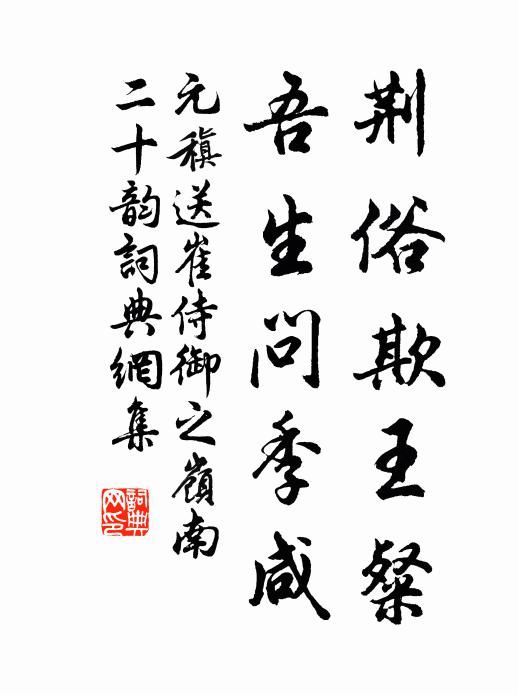 荆俗欺王粲
吾生问季咸
元稹送崔侍御之嶺南
二十韵詞典網集
詞典网印